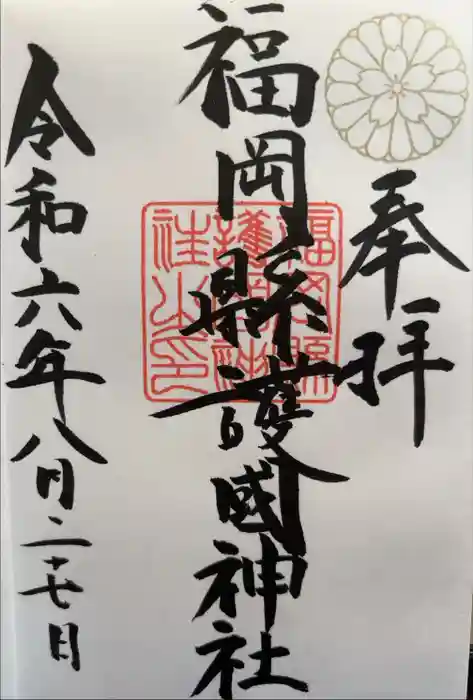 奉拝
福岡縣護國神社
令和六年八月二十七日